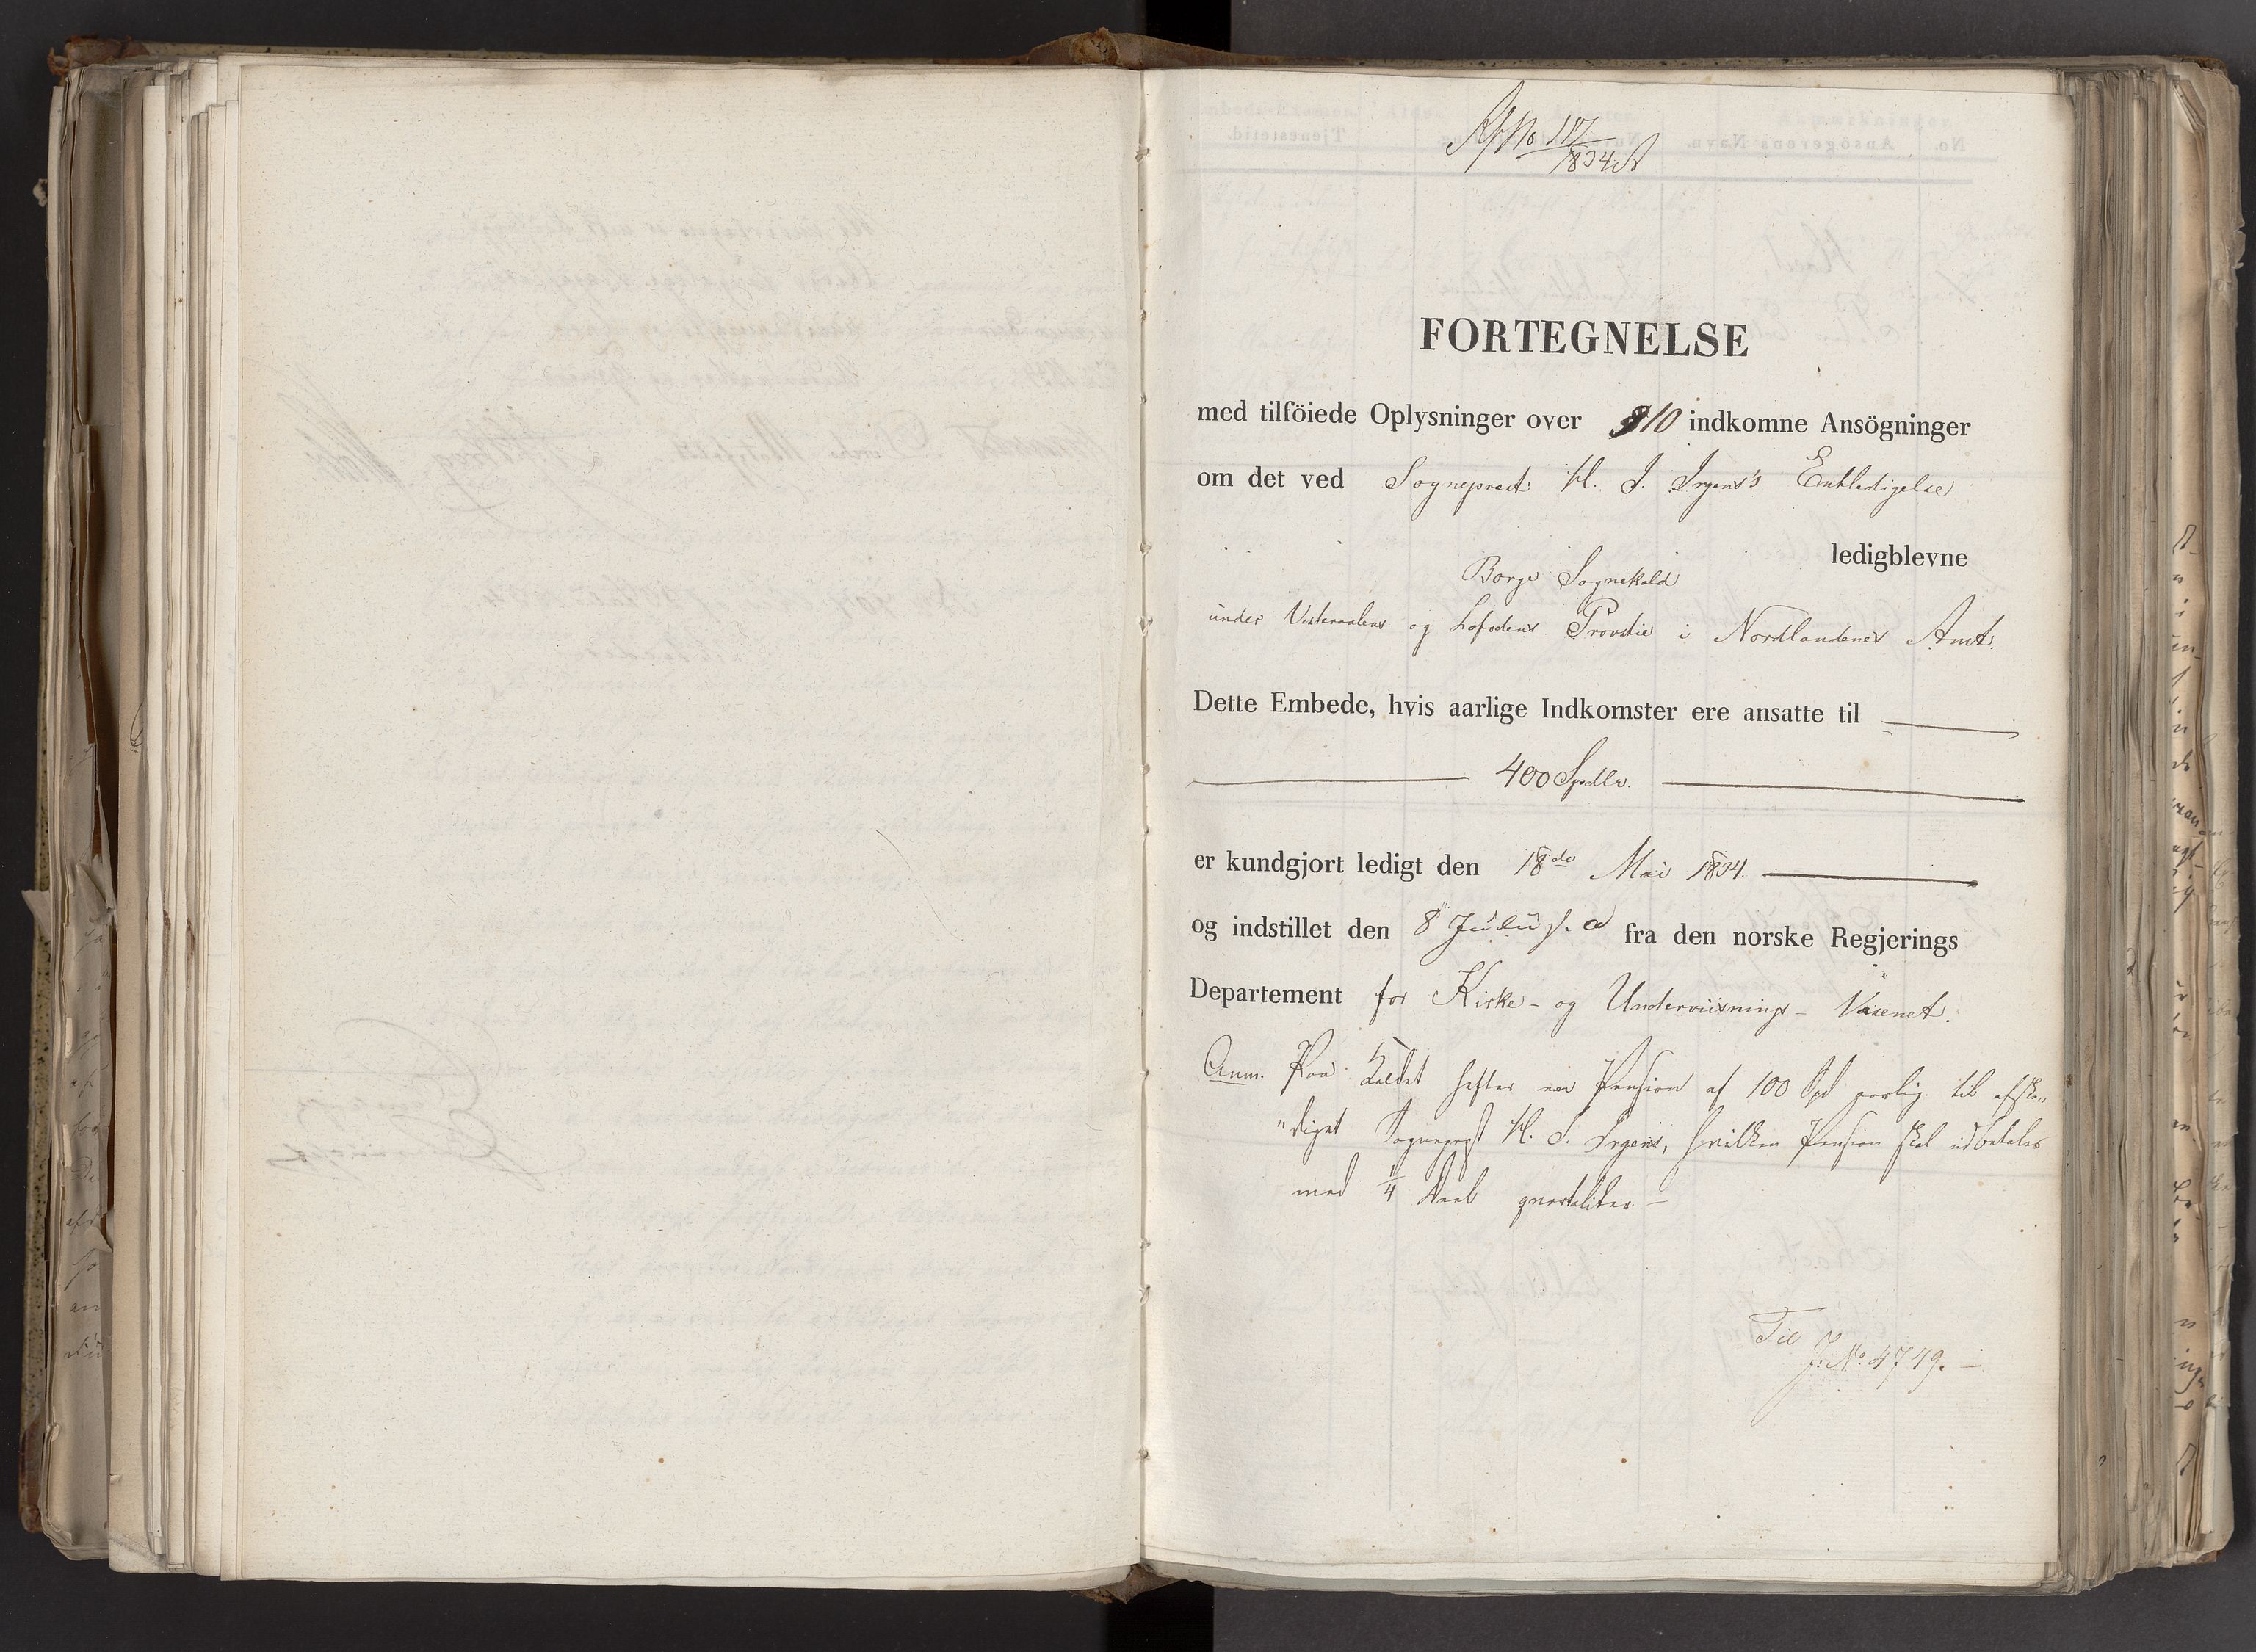 No 117/1834
FORTEGNELSE
med tilföiede Oplysninger over 10 indkomne Ansögninger
om det ved Sognepræst H. J. Irgens's Entledigelse
ledigblevne
Borge Sognekald
under Vesteraalens og Lofodens Provstie i Nordlandenes Amt.
Dette Embede, hvis aarlige Indkomster ere ansatte til
400 Spdlr.
er kundgjort ledigt den 18de Mai 1834.
og indstillet den 8 Juli s. a fra den norske Regjerings
Departement for Kirke- og Underviisnings-Væsenet.
Anm. Paa Kaldet hefter en Pension af 100 Spd aarlig til afske„
„diget Sognepræst H. J. Irgens, hvilken Pension skal udbetales
med 1/4 Deel qvartaliter. –
Til
J. No. 4749. –